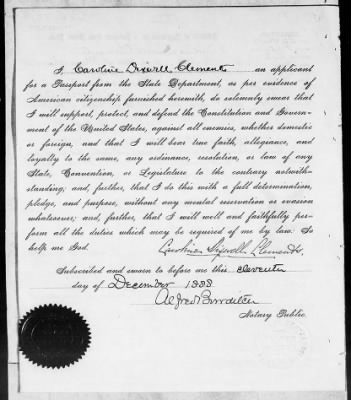 I, Caroline Dixwell Clements an applicant
for a Passport from the State Department, as per evidence of
American citizenship furnished herewith, do solemnly swear that
I will support, protect, and defend the Constitution and Govern-
ment of the United States, against all enemies, whether domestic
or foreign, and that I will bear true faith, allegiance, and
loyalty to the same, any ordinance, resolution, or law of any
State, Convention, or Legislature to the contrary notwith-
standing; and, further, that I do this with a full determination,
pledge, and purpose, without any mental reservation or evasion
whatsoever; and, further, that I will well and faithfully per-
form all the duties which may be required of me by law: So
help me God.
Caroline Dixwell Clements.
Subscribed and sworn to before me this eleventh
day of December 1888
Alfred Bowditch
Notary Public